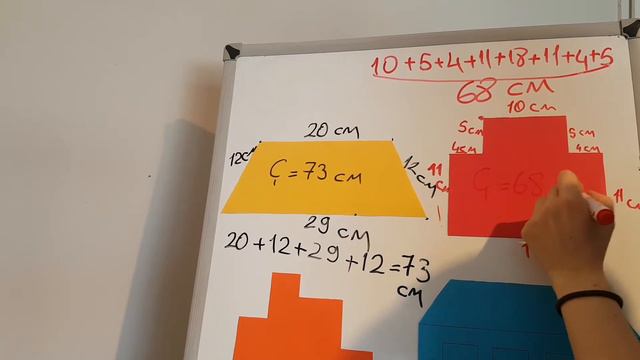 10+5+4+11+18+11+4+5
68 CM
10 cm
5cm
5cm
4cm
4cm
11
cm
11 c
Ç=68
20 cm
12cm
12 cm
Ç=73 cm
29 cm
20+12+29+12=73
cm